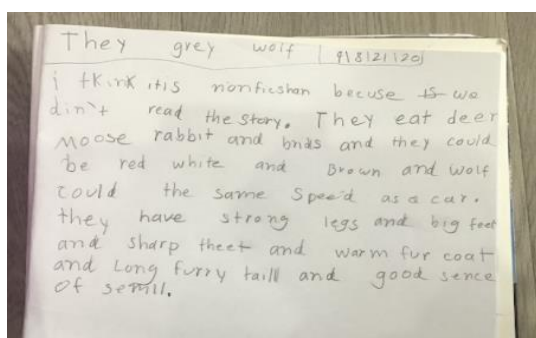 They grey wolf 9|8|21|20
i tkink itis nonficshan becuse ts we
din't read the story. They eat deer
moose rabbit and brids and they could
be red white and Brown and wolf
could the same Speed as a car.
they have strong legs and big feet
and sharp theet and warm fur coat
and Long furry taill and good sence
of semill.